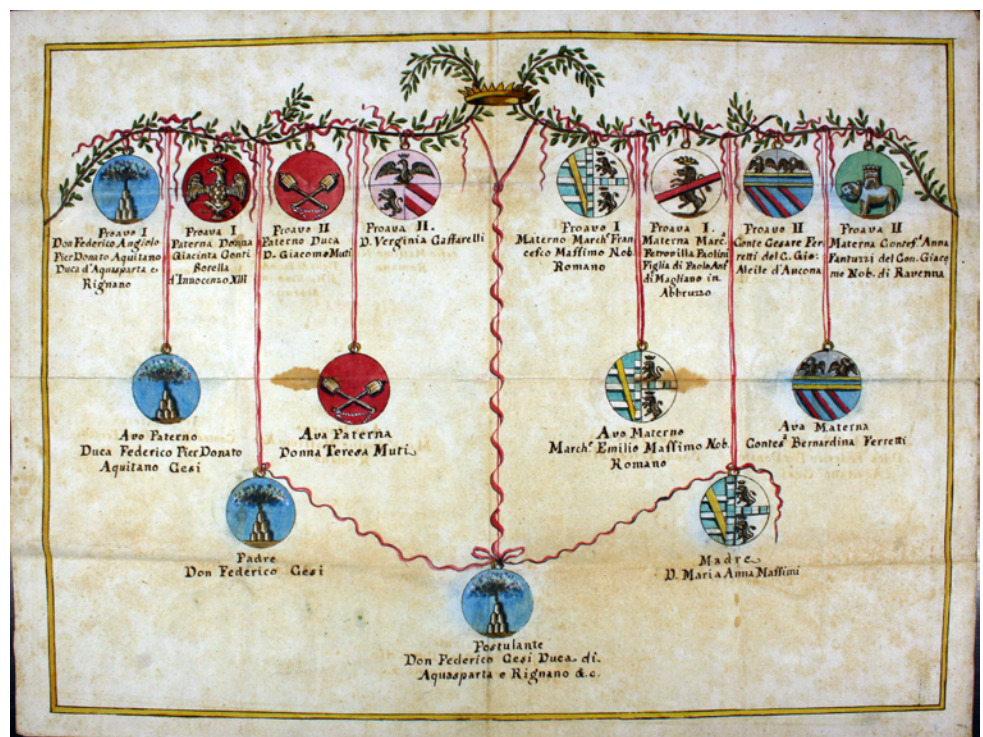 Proavo I
Don Federico Angiolo
Pier Donato Aquitano
Duca d'Aquasparta e
Rignano
Proava I
Paterna Donna
Giacinta Conti
Sorella
d'Innocenzo XIII
Proavo II
Paterno Duca
D. Giacomo Muti
Proava II.
D. Verginia Caffarelli
Proavo I
Materno March.e Fran
cesco Massimo Nob.
Romano
Proava I.
Materna Marc.a
Petronilla Paolini
Figlia di Paolo Ant
di Magliano in
Abbruzzo
Proavo II
Conte Cesare Fer
retti del C. Gio:
Aleile d'Ancona
Proava II
Materna Contes.a Anna
Fantuzzi del Con. Giaco
mo Nob. di Ravenna
Avo Paterno
Duca Federico Pier Donato
Aquitano Cesi
Ava Paterna
Donna Teresa Muti
Avo Materno
March.e Emilio Massimo Nob.
Romano
Ava Materna
Contes.a Bernardina Ferretti
Padre
Don Federico Cesi
Madre
D. Maria Anna Massimi
Postulante
Don Federico Cesi Duca di
Aquasparta e Rignano &.c.